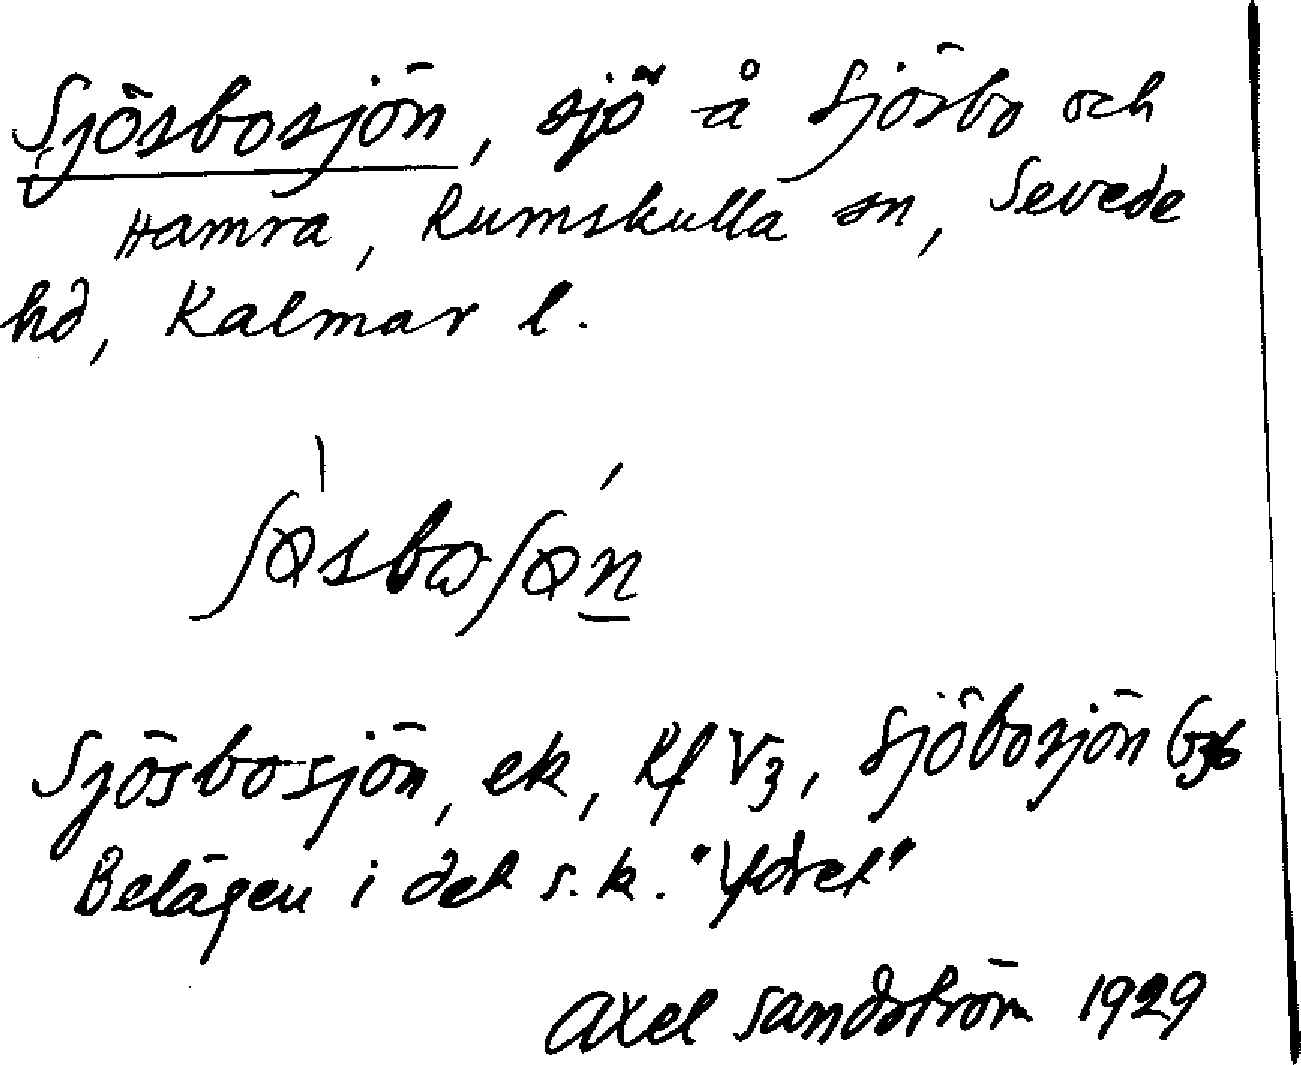 Sjösbosjön, sjö å Sjösbo och
Hamra, Rumskulla sn, Sevede
hd, Kalmar l.
ʃøsboʃøn
Sjösbosjön, ek, Rf V3, Sjöbosjön G36
Belägen i det s.k. "Ydret"
Axel Sandström 1929